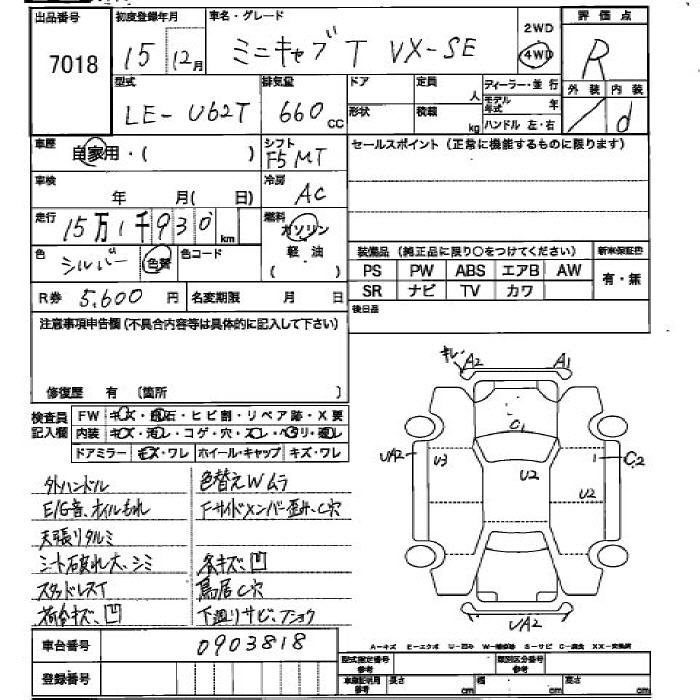 出品番号 初度登録年月 車名・グレード 評価点
7018 15 12月 ミニキャブT VX-SE 2WD 4WD R
型式 排気量 ドア 定員 人 ディーラー・並行 外装 内装
LE-U62T 660 CC 形状 積載 kg モデル年式 年 / d
ハンドル 左・右
車歴 自家用・( ) シフト F5 MT セールスポイント(正常に機能するものに限ります)
車検 年 月( 日) 冷房 AC
走行 15万1千930 km 燃料 ガソリン
色 シルバー 色替 色コード 軽油 装備品(純正品に限り○をつけてください) 新車保証書
PS PW ABS エアB AW 有・無
R券 5,600 円 名変期限 月 日 SR ナビ TV カワ
注意事項申告欄(不具合内容等は具体的に記入して下さい) 後日品
修復歴 有 (箇所 )
検査員記入欄 FW キズ・飛石・ヒビ割・リペア跡・X要
内装 キズ・汚レ・コゲ・穴・スレ・ヘタリ・
ドアミラー キズ・ワレ ホイール・キャップ キズ・ワレ
キレ A2 A1
C1
UA2 U3 U2 1 C2
U2
UA2
外ハンドル 色替えWムラ
E/G音、オイルもれ Fサイドメンバー歪み、C穴
天張リタルミ
シート破れ大、シミ 条キズ、凹
スタッドレスT 鳥居C穴
荷台キズ、凹 下廻りサビ、フショク
A-キズ E-エクボ U-凹み W-補修跡 S-サビ C-腐食 XX-交換済
車台番号 0903818
型式指定番号 類別区分番号
登録番号 参考 車庫証明用 長さ cm 幅 cm 高さ cm